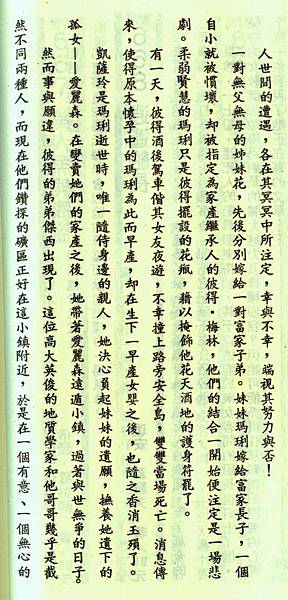 人世間的遭遇，各在其冥冥中所注定，幸與不幸，端視其努力與否！
一對無父無母的姊妹花，先後分別嫁給一對富家子弟。妹妹瑪琍嫁給富家長子，一個
自小就被慣壞，却被指定為家產繼承人的彼得·梅林，他們的結合一開始便注定是一場悲
劇。柔弱賢慧的瑪琍只是彼得擺設的花瓶，藉以掩飾他花天酒地的護身符罷了。
有一天，彼得酒後駕車偕其女友夜遊，不幸撞上路旁安全島，雙雙當場死亡。消息傳
來，使得原本懷孕中的瑪琍為此而早產，却在生下一早產女嬰之後，也隨之香消玉殞了。
凱薩玲是瑪琍逝世時，唯一隨侍身邊的親人，她決心負起妹妹的遺願，撫養她遺下的
孤女——愛麗森。在變賣她們的家產之後，她帶著愛麗森遠遁小鎮，過著與世無爭的日子。
然而事與願違，彼得的弟弟傑西出現了。這位高大英俊的地質學家和他哥哥幾乎是截
然不同兩種人，而現在他們鑽探的礦區正好在這小鎮附近，於是在一個有意、一個無心的